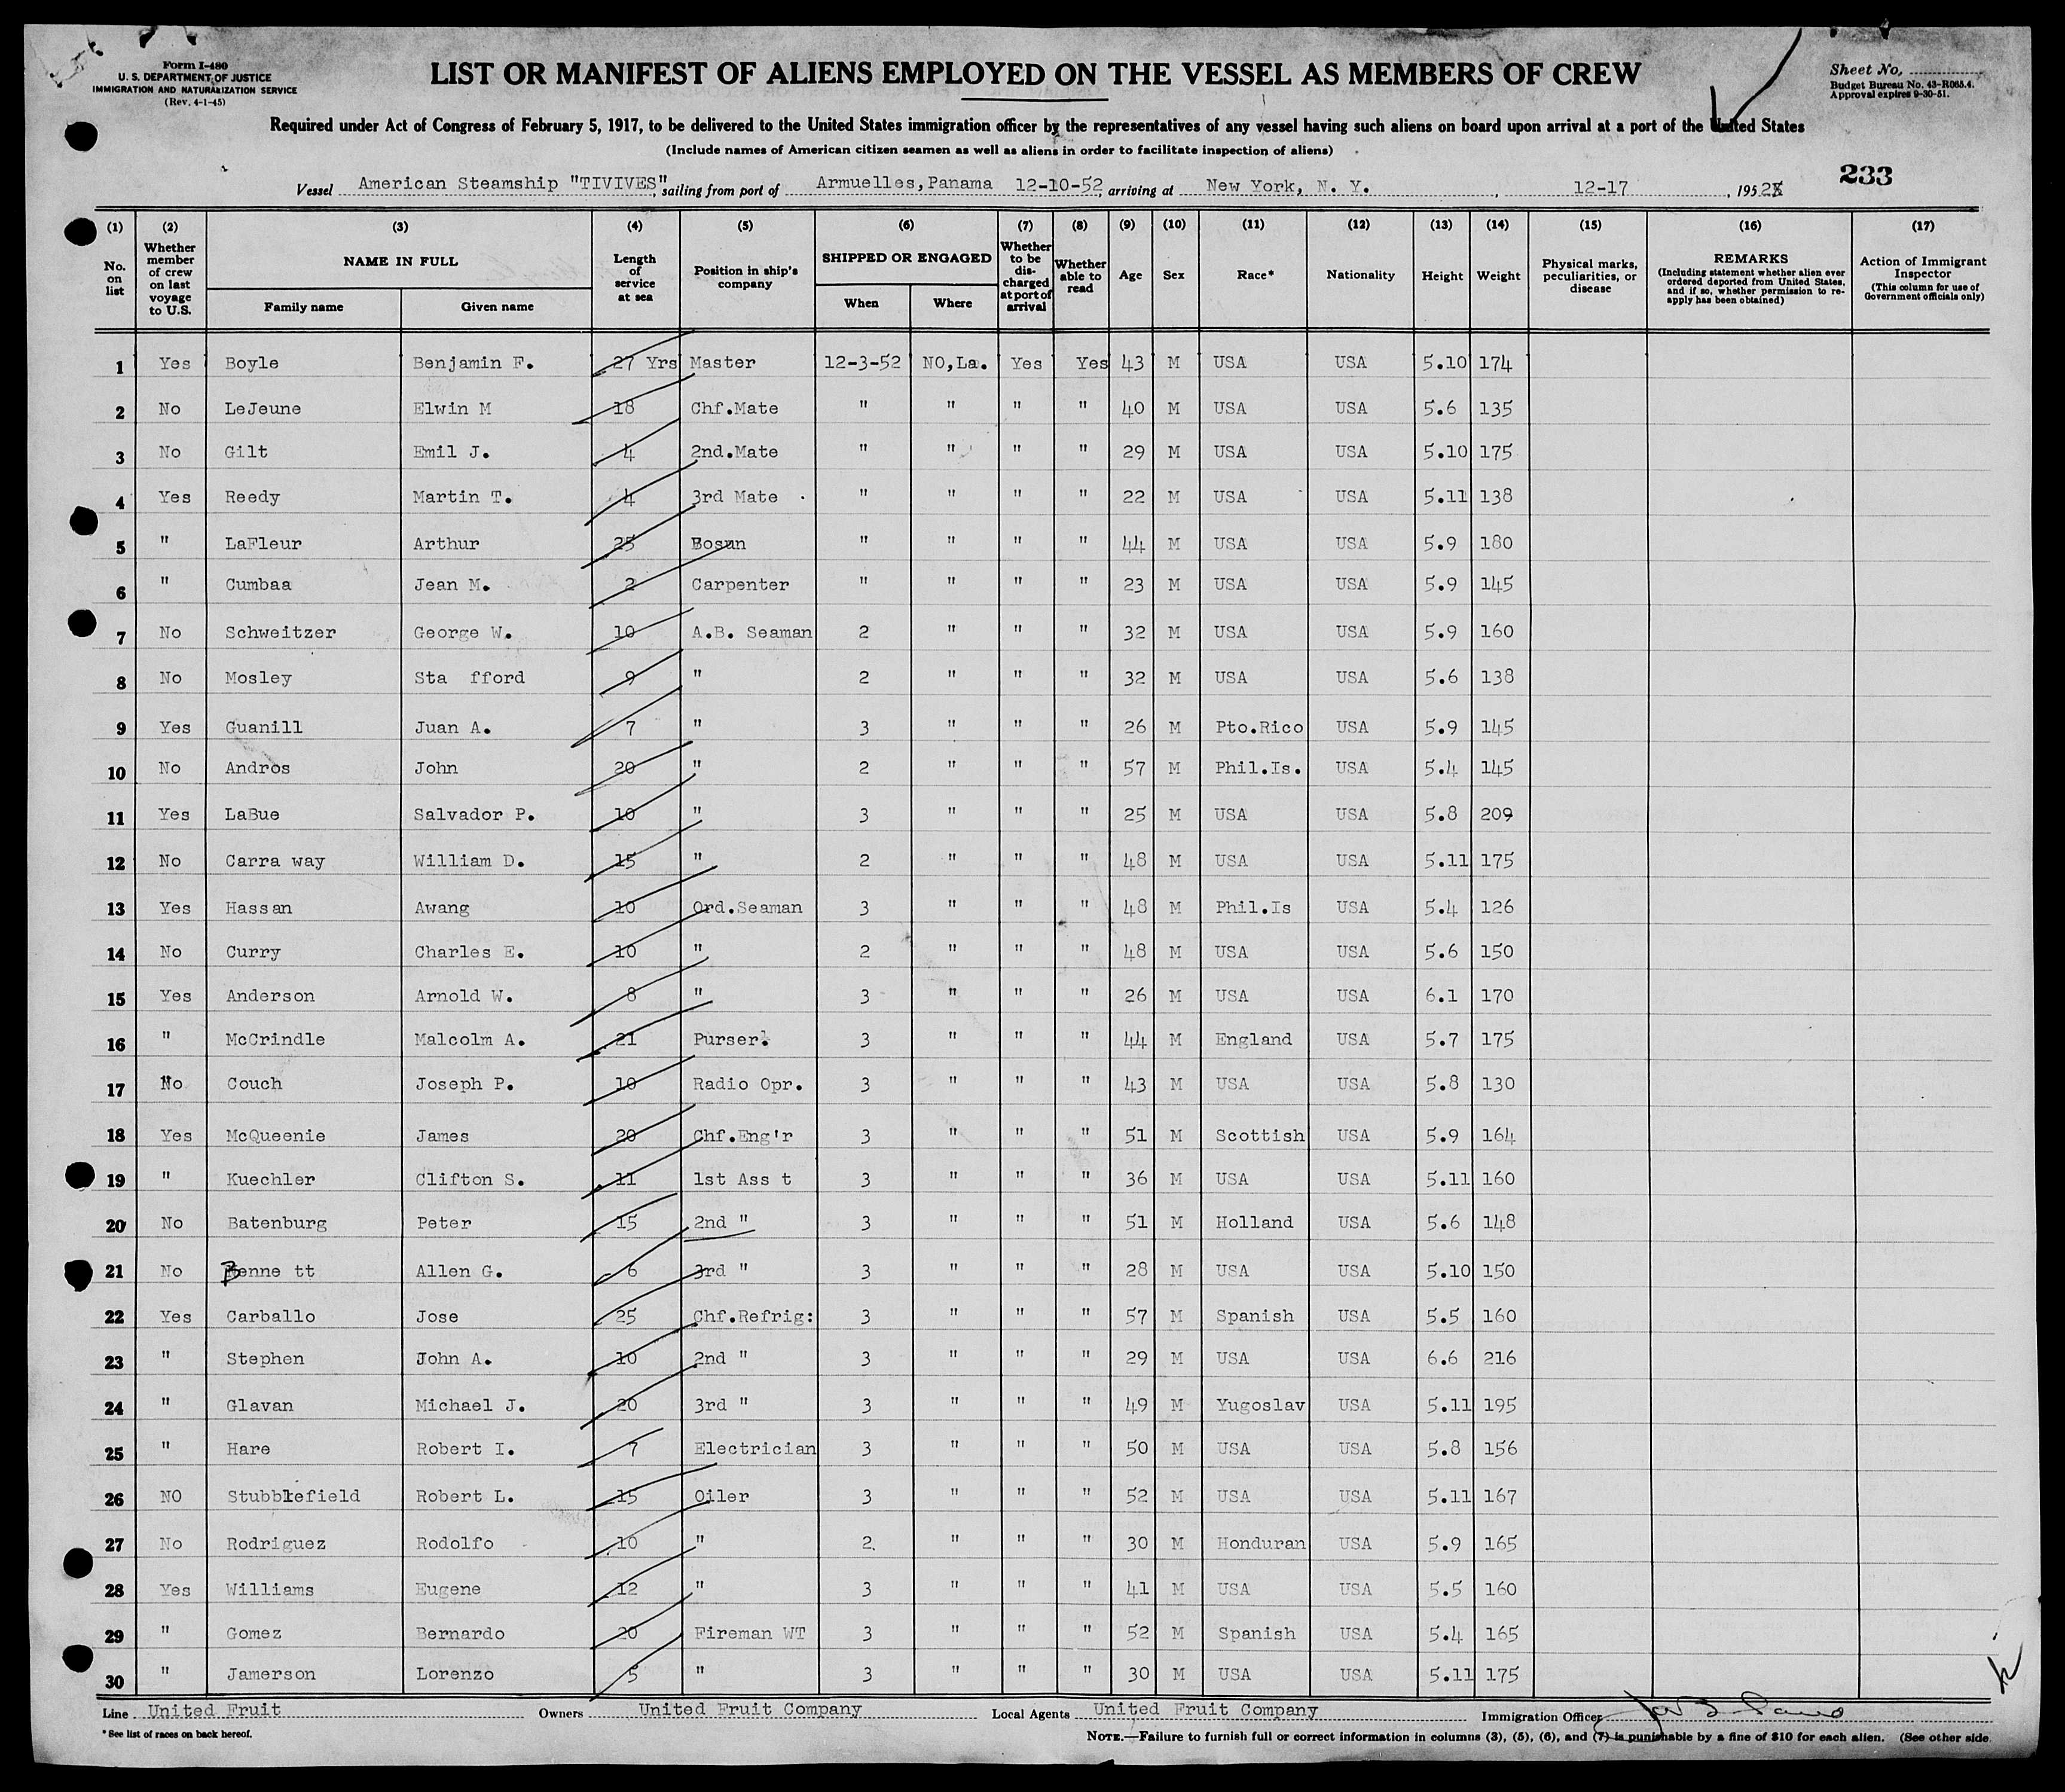 Form I-480
U. S. DEPARTMENT OF JUSTICE
IMMIGRATION AND NATURALIZATION SERVICE
(Rev. 4-1-45)
LIST OR MANIFEST OF ALIENS EMPLOYED ON THE VESSEL AS MEMBERS OF CREW
Sheet No.
Budget Bureau No. 43-R065.4.
Approval expires 9-30-51.
Required under Act of Congress of February 5, 1917, to be delivered to the United States immigration officer by the representatives of any vessel having such aliens on board upon arrival at a port of the United States
(Include names of American citizen seamen as well as aliens in order to facilitate inspection of aliens)
Vessel American Steamship "TIVIVES", sailing from port of Armuelles,Panama 12-10-52, arriving at New York, N. Y., 12-17, 1952
233
(1) (2) (3) (4) (5) (6) (7) (8) (9) (10) (11) (12) (13) (14) (15) (16) (17)
No. on list
Whether member of crew on last voyage to U.S.
NAME IN FULL
Family name Given name
Length of service at sea
Position in ship's company
SHIPPED OR ENGAGED
When Where
Whether to be discharged at port of arrival
Whether able to read
Age Sex Race* Nationality Height Weight
Physical marks, peculiarities, or disease
REMARKS
(Including statement whether alien ever ordered deported from United States, and if so, whether permission to re-apply has been obtained)
Action of Immigrant Inspector
(This column for use of Government officials only)
1 Yes Boyle Benjamin F. 27 Yrs Master 12-3-52 NO,La. Yes Yes 43 M USA USA 5.10 174
2 No LeJeune Elwin M 18 Chf.Mate " " " " 40 M USA USA 5.6 135
3 No Gilt Emil J. 4 2nd.Mate " " " " 29 M USA USA 5.10 175
4 Yes Reedy Martin T. 4 3rd Mate " " " " 22 M USA USA 5.11 138
5 " LaFleur Arthur 25 Bosun " " " " 44 M USA USA 5.9 180
6 " Cumbaa Jean M. 2 Carpenter " " " " 23 M USA USA 5.9 145
7 No Schweitzer George W. 10 A.B. Seaman 2 " " " 32 M USA USA 5.9 160
8 No Mosley Sta fford 9 " 2 " " " 32 M USA USA 5.6 138
9 Yes Guanill Juan A. 7 " 3 " " " 26 M Pto.Rico USA 5.9 145
10 No Andros John 20 " 2 " " " 57 M Phil.Is. USA 5.4 145
11 Yes LaBue Salvador P. 10 " 3 " " " 25 M USA USA 5.8 209
12 No Carra way William D. 15 " 2 " " " 48 M USA USA 5.11 175
13 Yes Hassan Awang 10 Ord.Seaman 3 " " " 48 M Phil.Is USA 5.4 126
14 No Curry Charles E. 10 " 2 " " " 48 M USA USA 5.6 150
15 Yes Anderson Arnold W. 8 " 3 " " " 26 M USA USA 6.1 170
16 " McCrindle Malcolm A. 21 Purser. 3 " " " 44 M England USA 5.7 175
17 No Couch Joseph P. 10 Radio Opr. 3 " " " 43 M USA USA 5.8 130
18 Yes McQueenie James 20 Chf.Eng'r 3 " " " 51 M Scottish USA 5.9 164
19 " Kuechler Clifton S. 11 1st Ass t 3 " " " 36 M USA USA 5.11 160
20 No Batenburg Peter 15 2nd " 3 " " " 51 M Holland USA 5.6 148
21 No Benne tt Allen G. 6 3rd " 3 " " " 28 M USA USA 5.10 150
22 Yes Carballo Jose 25 Chf.Refrig: 3 " " " 57 M Spanish USA 5.5 160
23 " Stephen John A. 10 2nd " 3 " " " 29 M USA USA 6.6 216
24 " Glavan Michael J. 20 3rd " 3 " " " 49 M Yugoslav USA 5.11 195
25 " Hare Robert I. 7 Electrician 3 " " " 50 M USA USA 5.8 156
26 NO Stubblefield Robert L. 15 Oiler 3 " " " 52 M USA USA 5.11 167
27 No Rodriguez Rodolfo 10 " 2. " " " 30 M Honduran USA 5.9 165
28 Yes Williams Eugene 12 " 3 " " " 41 M USA USA 5.5 160
29 " Gomez Bernardo 20 Fireman WT 3 " " " 52 M Spanish USA 5.4 165
30 " Jamerson Lorenzo 5 " 3 " " " 30 M USA USA 5.11 175
Line United Fruit Owners United Fruit Company Local Agents United Fruit Company Immigration Officer
*See list of races on back hereof.
NOTE.—Failure to furnish full or correct information in columns (3), (5), (6), and (7) is punishable by a fine of $10 for each alien. (See other side.